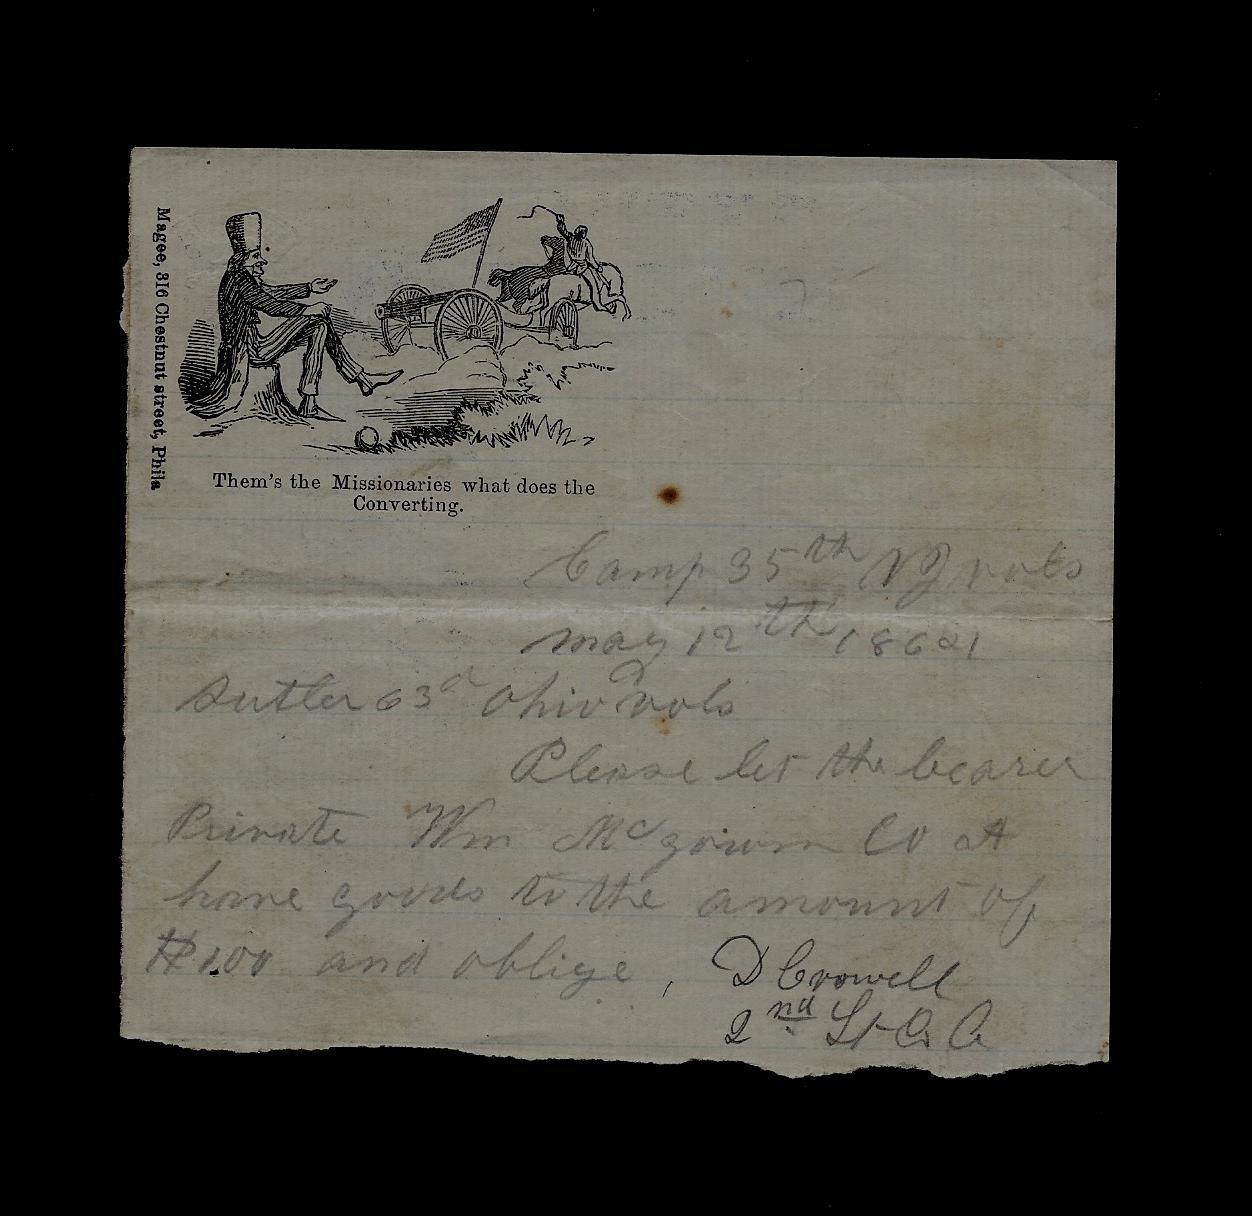 Magee, 316 Chestnut street, Phila
Them's the Missionaries what does the
Converting.
Camp 35th NJ vols
may 12th 1864
Sutler 63d Ohio vols
Please let the bearer
Private Wm McGowan Co A
have goods to the amount of
$1.00 and oblige, D Crowell
2nd Lt Co A